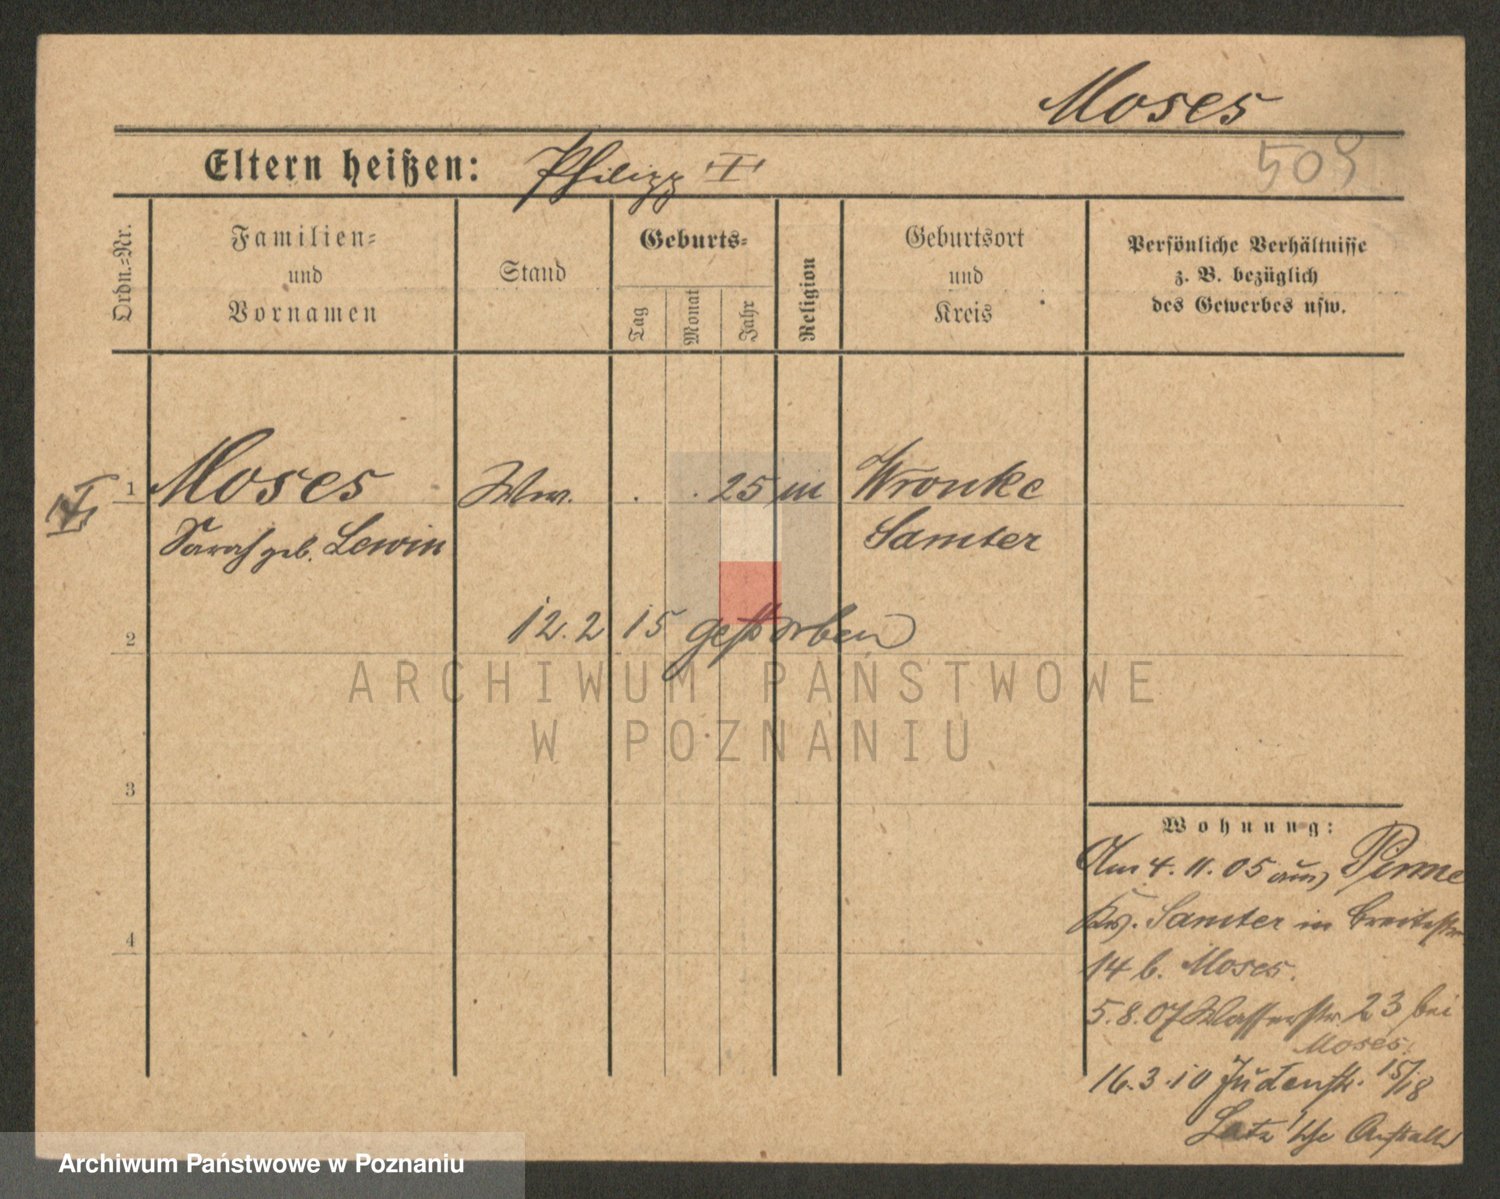 Moses
509
Eltern heißen: Philipp I
Ordn.-Nr.
Familien-
und
Vornamen
Stand
Geburts-
Tag
Monat
Jahr
Religion
Geburtsort
und
Kreis
Persönliche Verhältnisse
z. B. bezüglich
des Gewerbes usw.
1 Moses Ww. . . 25 m Wronke
Sarah geb. Lewin Samter
2 12.2 15 gestorben
ARCHIWUM PAŃSTWOWE
W POZNANIU
3
4
Wohnung:
Am 4.11.05 aus Pinne
Krs. Samter in Breitestr
14 b. Moses.
5.8.07 Wasserstr. 23 bei
Moses.
16.3.10 Judenstr. 15/18
Latz'sche Anstalt
Archiwum Państwowe w Poznaniu